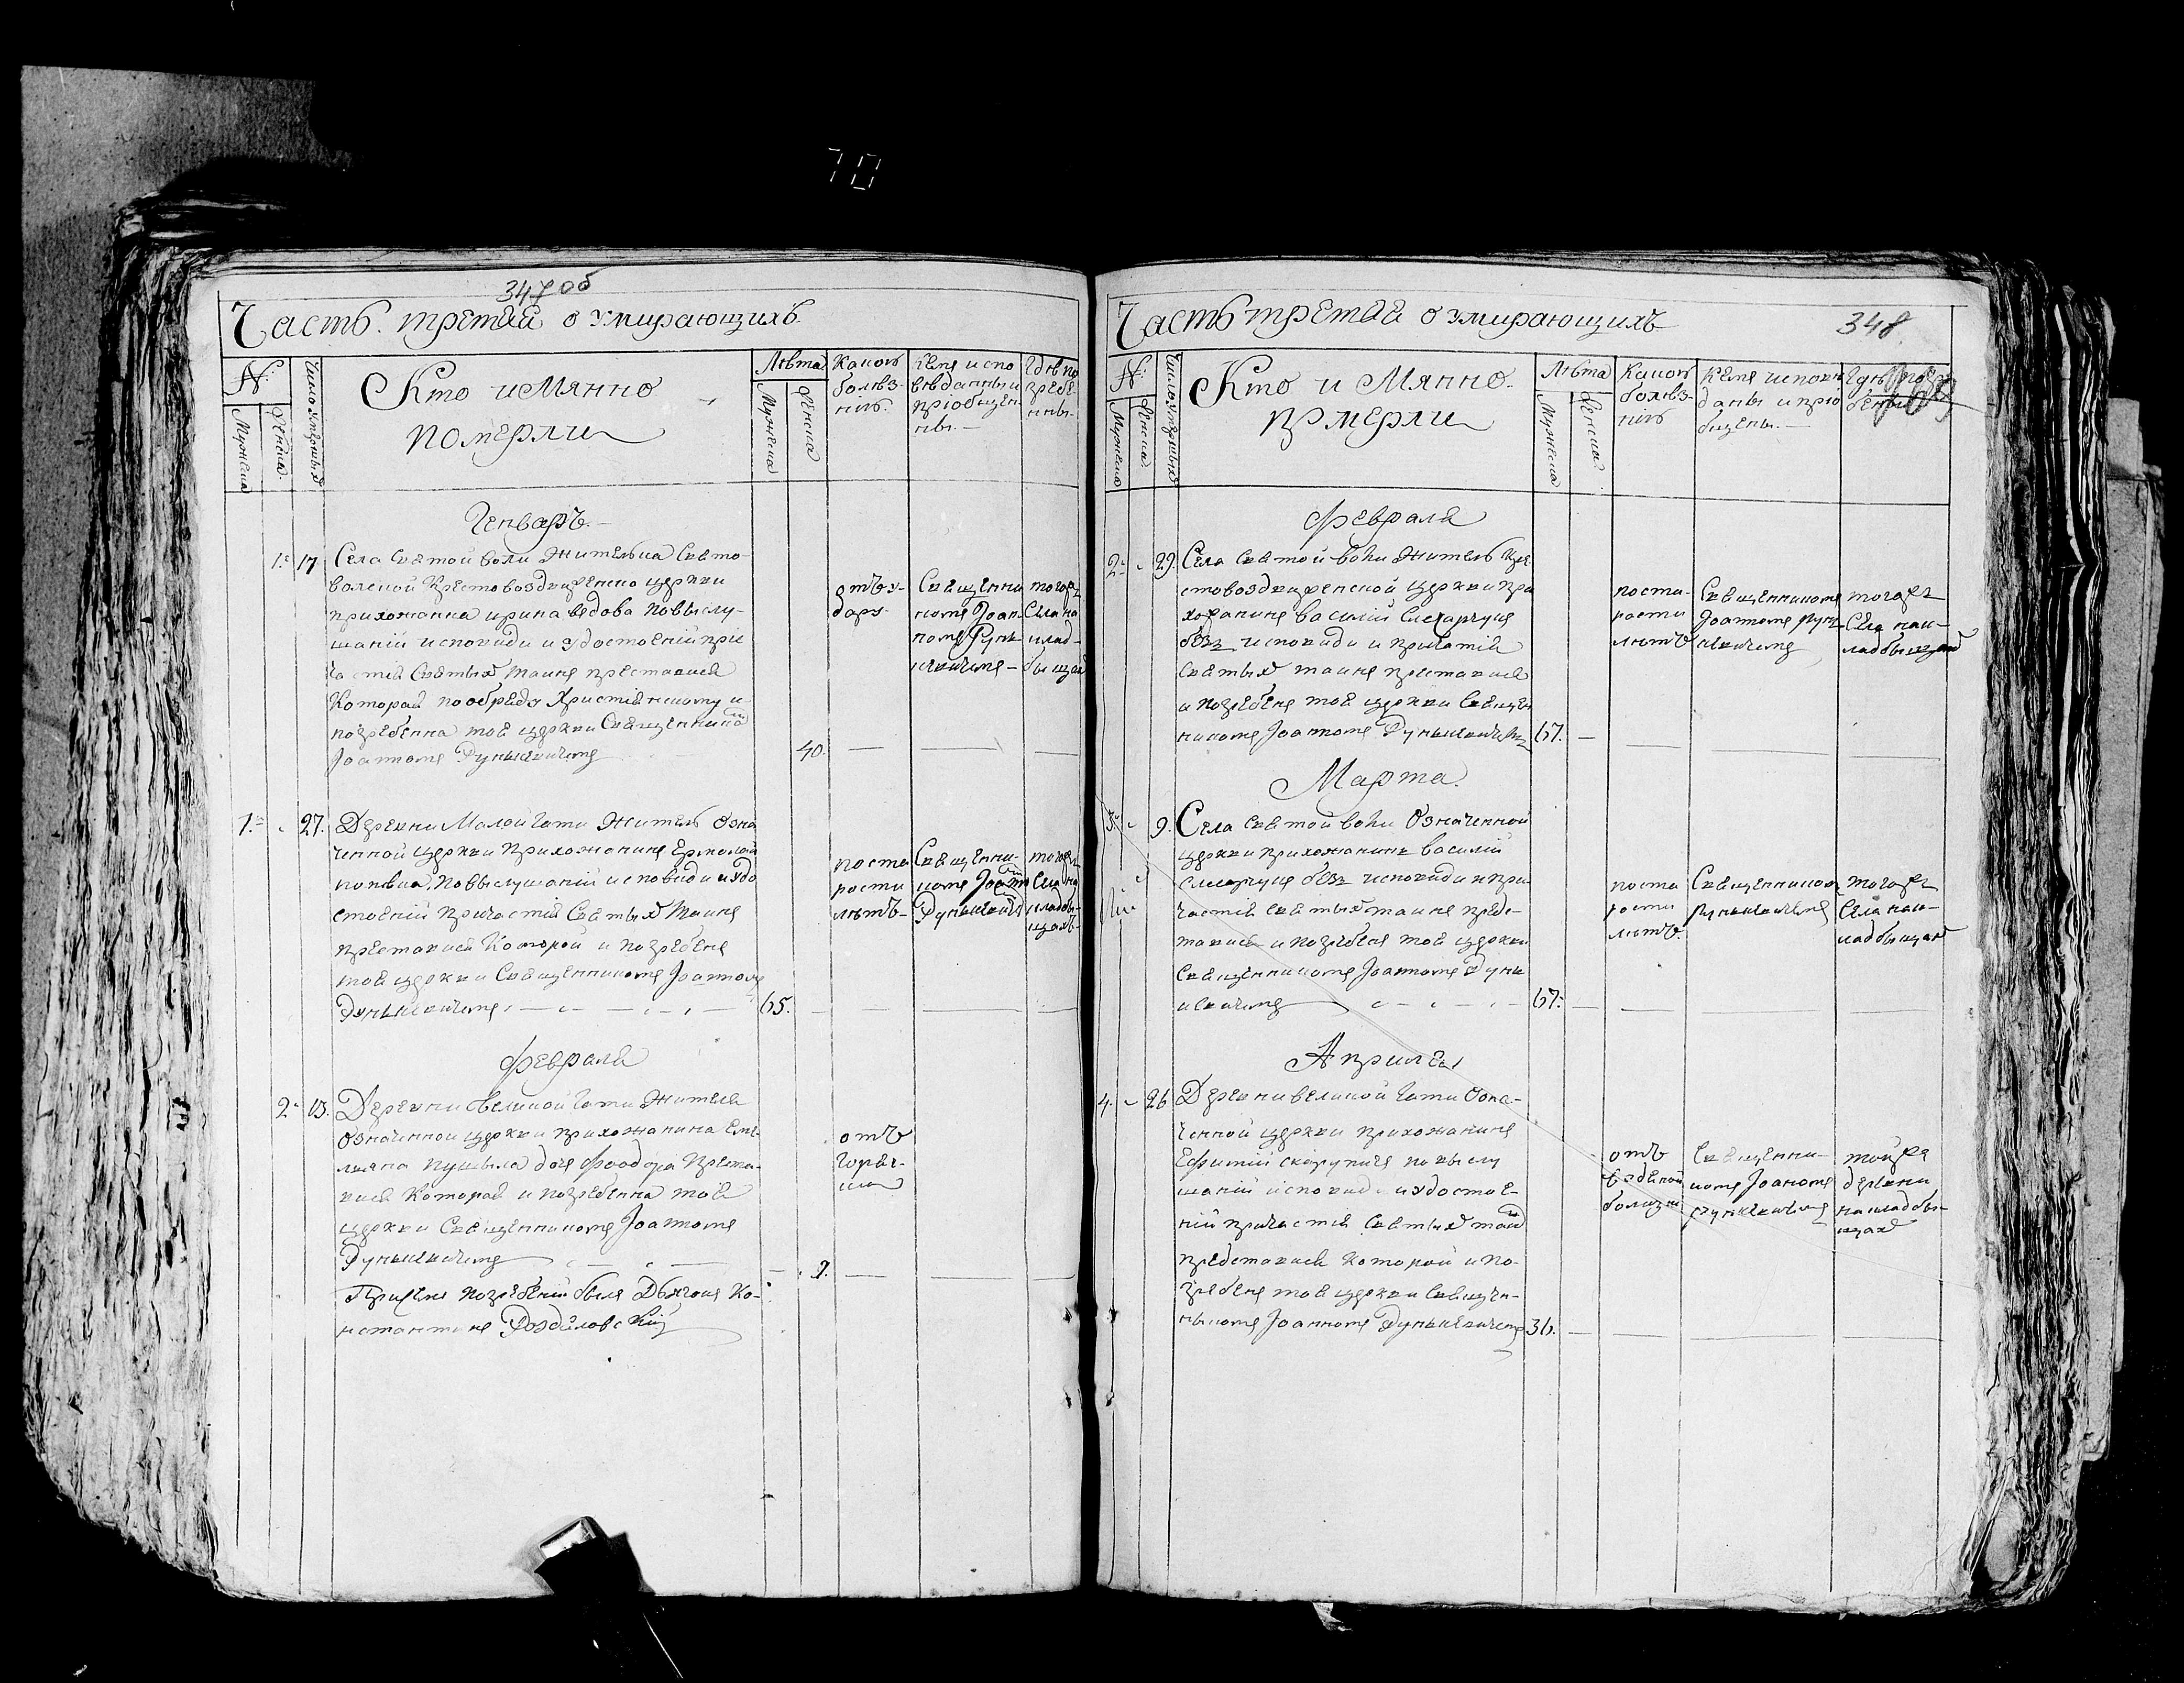 70
347 об
Часть. третая о умирающихъ
№:
Мужеска
Женска
Число умершихъ
Кто иМянно
померли
Лѣта
Мужеска
Женска
Какою
болѣз-
нію.
Кемъ испо
вѣданны и
пріобщен
ны. —
Гдѣ по
гребе-
нны-
Генваръ. —
1. 17 Села Святой воли Жителка Свято-
волской Крестовоздвиженско церкви
прихожанка ирина ведова повыслу-
шаніи исповиди и удостоеніи при
частія Святыхъ таинъ преставися
Которая пообряду Христіянкому и
погребенна тоя церкви Священникомъ
Іоанномъ Рункевичемъ
40.
отъ у-
дару-
Священни
комъ Іоан-
номъ Рунк
иевичемъ —
тогожъ
Села на
клад-
бищах
1. 27. Деревни Малой Гати Житель Озна
ченной церкви Прихожанинъ Ермолай
повыслушаніи исповиди и удо
стоеніи Причастія Святыхъ Таинъ
преставися Которой и погребенъ
тоя церкви Священникомъ Іоанномъ
Рункиевичемъ
65.
поста
рости
лѣтъ-
Священни-
комъ
Рункиевиче
тогожъ
Села на
кладби-
щахъ-
февраля
2. 13. Деревни великой Гати Жителя
Означенной церкви прихожанина Еме-
лияна дочь Феодора преста-
вися Которая и погребенна тоя
церкви Священникомъ Іоанномъ
Рункиевичемъ
9.
отъ
Горяч-
ки
При семъ погребеніи былъ Дьячокъ Ко-
нстантинъ
Часть третая о умирающихъ
348
№:
Мужеска
Женска
Число умершихъ
Кто и Мянно.
Померли
Лѣта
Мужеска
Женска.
Какою
болѣз-
нію
Кемъ исповѣ
даны и пріо
бщены. —
Гдѣ погре
бены
Февраля
2. 29. Села Святой воли Житель Кре
стовоздвиженской Церкви При
хожанинъ василій Слесарчукъ
безъ исповиди и Причатія
Святыхъ таинъ преставися
и погребенъ тоя церкви Священ
никомъ Іоанномъ Рункиевичемъ
67.
поста-
рости
лѣтъ
Священникомъ
Іоанномъ Рунк
иевичемъ
тогожъ
Села на к-
ладбищах
Марта.
3. 9. Села Святой воли Означенной
церкви прихожанинъ василій
Слесарчукъ безъ исповиди и при
частія Святыхъ таинъ пред-
тавися и погребенъ тоя церкви
Священникомъ Іоанномъ Рунк
иевичемъ
67.
поста
рости
лѣтъ.
Священником
Рункиевичемъ
тогожъ
Села на к-
ладбищах
Априля
4. 26 Деревни великой Гати Озна-
ченной церкви прихожанинъ
Ефитій повыслу
шаніи исповиди и удостое-
ніи Причастія Святыхъ таин
представися Которой и по-
гребенъ тоя церкви Священ-
никомъ Іоанномъ Рункиевичемъ
36.
отъ
болизни
Священни-
комъ Іоаномъ
Рункиевичемъ
тойже
деревни
на кладби-
щах